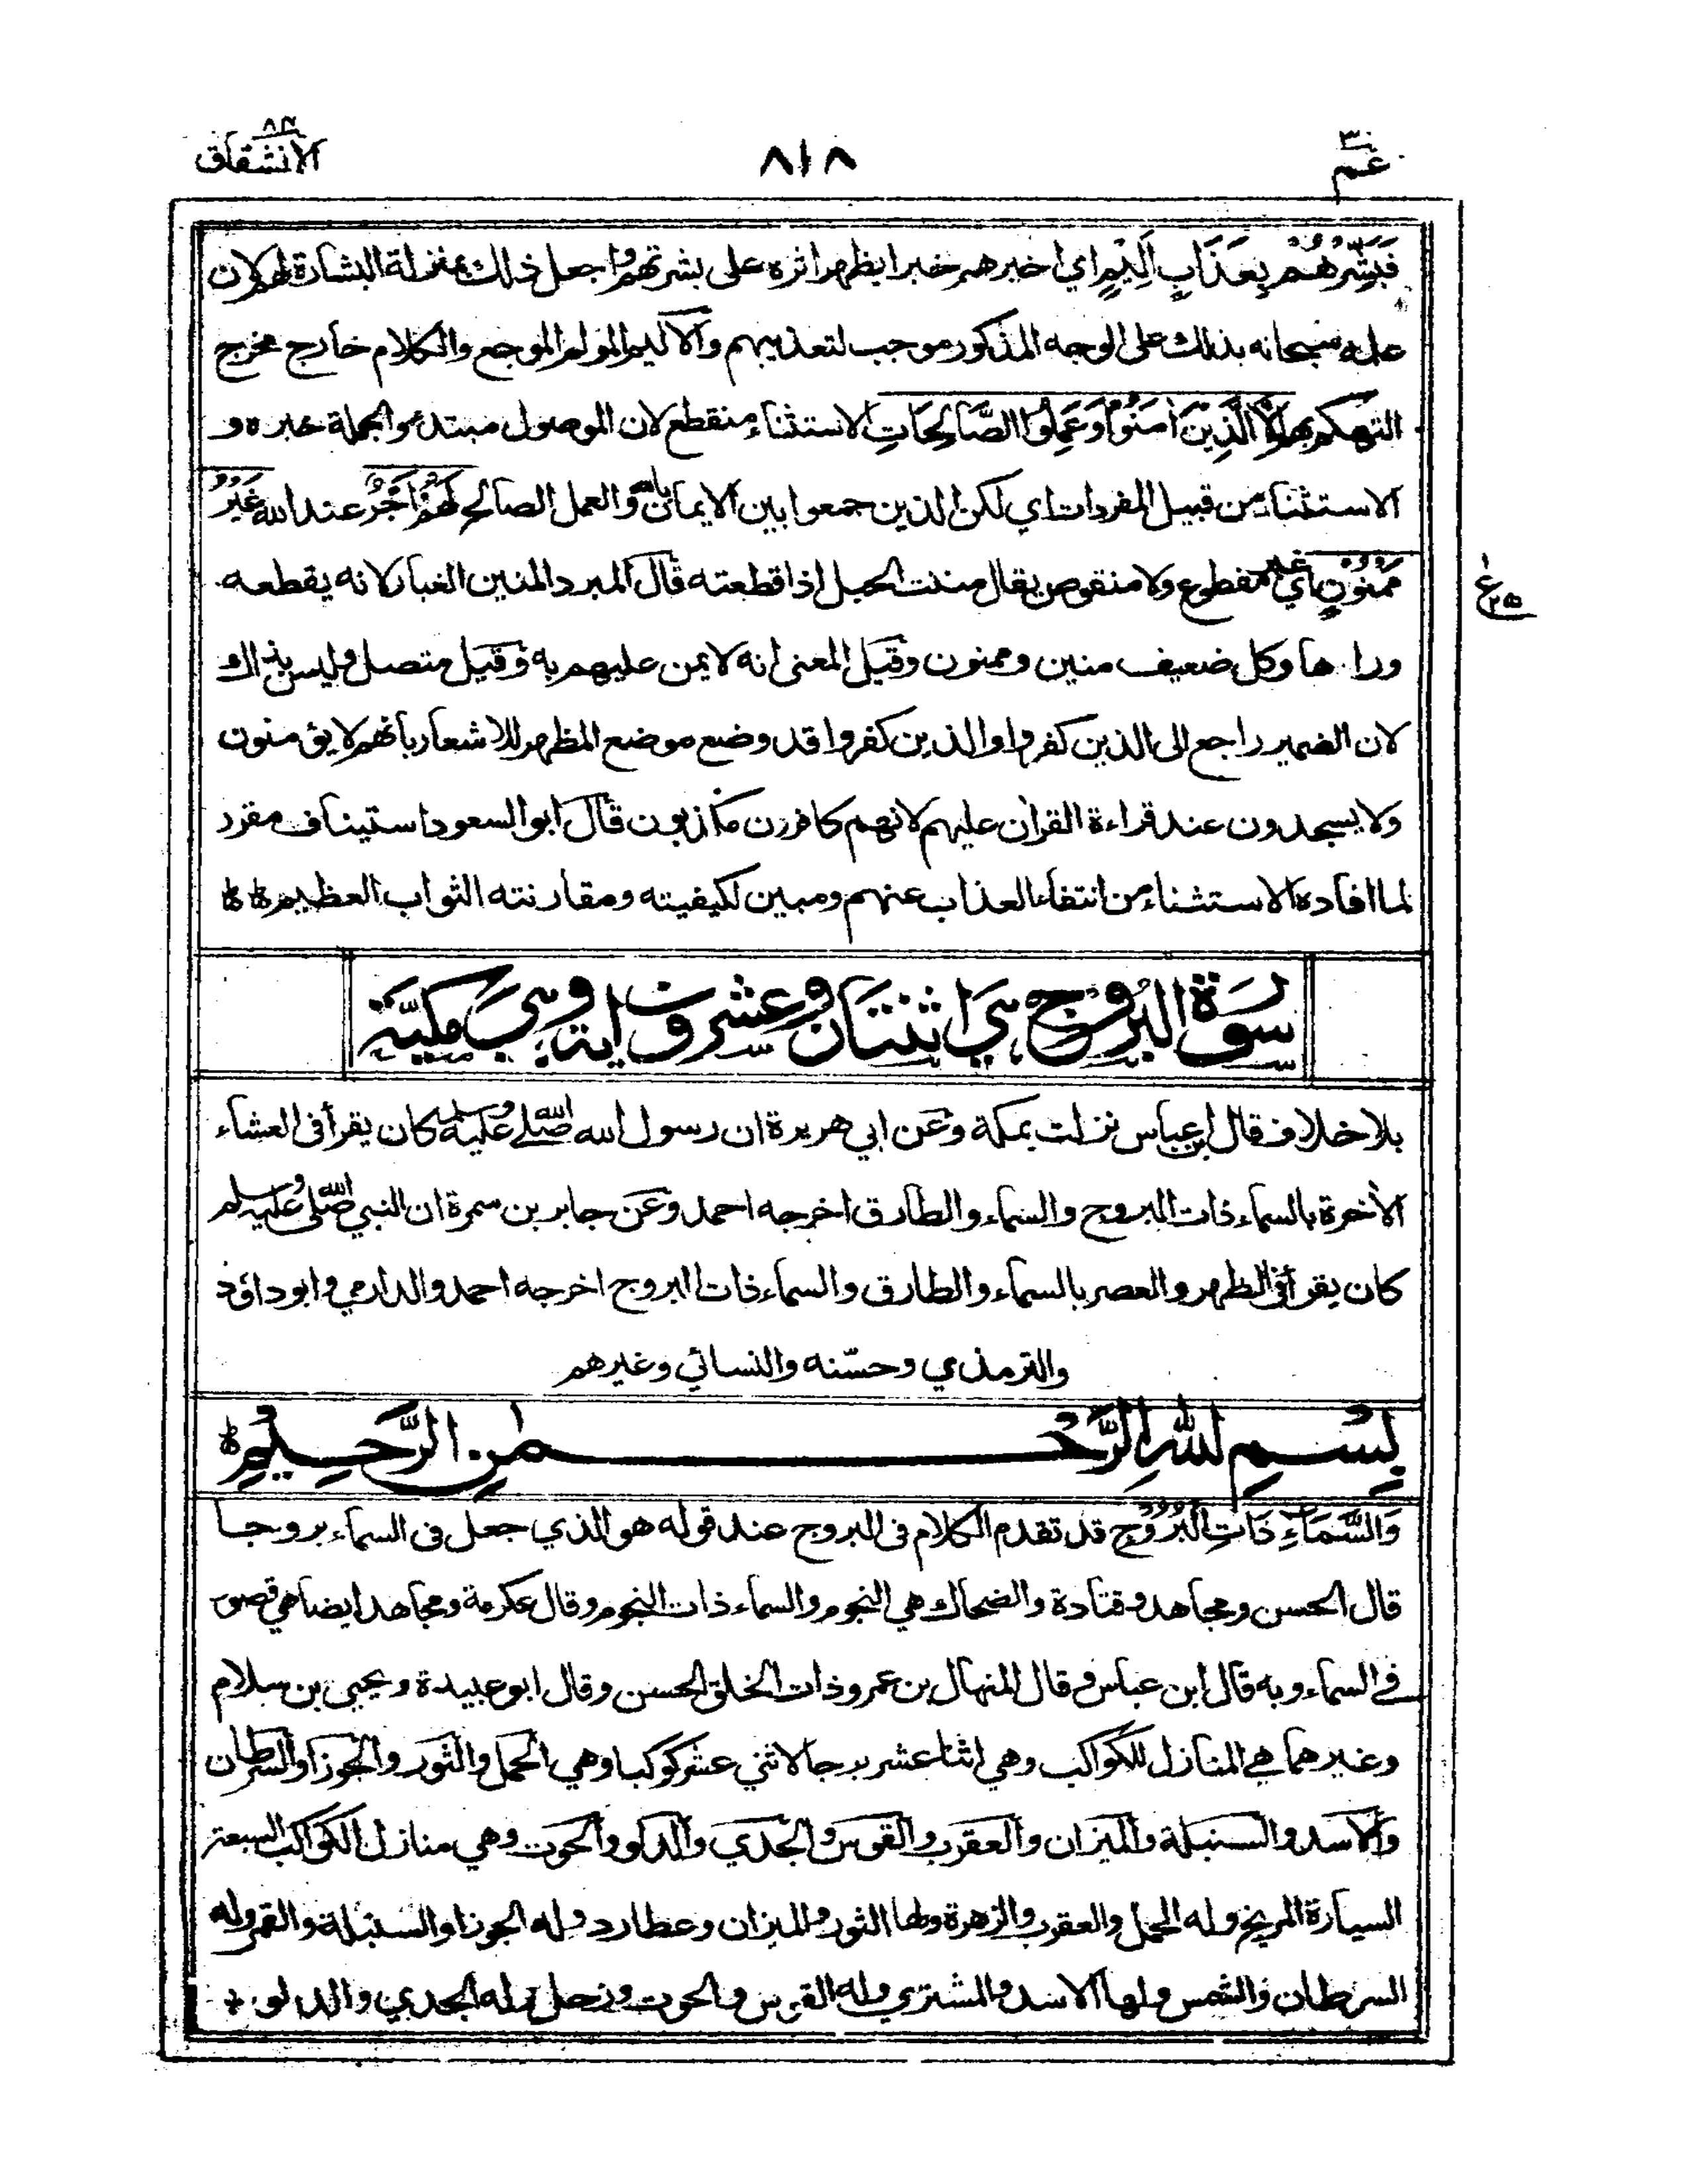 عم ٣٠
٨١٨
الانشقاق ٨٤
فَبَشِّرْهُمْ بِعَذَابٍ اَلِيْمٍ اي اخبرهم خبرا يظهر اثره على بشرتهم واجعل ذلك بمنزلة البشارة لهم لان
علمه سبحانه بذلك على الوجه المذكور موجب لتعذيبهم والاليم المولم الموجع والكلام خارج مخرج
التهكم بهم اِلَّا الَّذِيْنَ اٰمَنُوْا وَعَمِلُوا الصَّالِحَاتِ الاستثناء منقطع لان الموصول مبتدء والجملة خبره و
الاستثناء من قبيل المفردات اي لكن الذين جمعوا بين الايمان بالله والعمل الصالح لَهُمْ اَجْرٌ عند الله غَيْرُ
مَمْنُوْنٍ اي غير مقطوع ولا منقوص يقال مننت الحبل اذا قطعته قال المبرد المنين الغبار لانه يقطعه
وراءها وكل ضعيف منين وممنون وقيل المعنى انه لا يمن عليهم به وقيل متصل وليس بذاك
لان الضمير راجع الى الذين كفروا والذين كفروا قد وضع موضع المظهر للاشعار بانهم لا يؤمنون
ولا يسجدون عند قراءة القران عليهم لانهم كافرون مكذبون قال ابو السعود استيناف مقرر
لما افاده الاستثناء من انتفاء العذاب عنهم ومبين لكيفيته ومقارنته الثواب العظيم
سورة البروج هي اثنتان وعشرون اية وهي مكيّة
بلا خلاف قال ابن عباس نزلت بمكة وعن ابي هريرة ان رسول الله صلى الله عليه وسلم كان يقرأ فى العشاء
الاخرة بالسماء ذات البروج والسماء والطارق اخرجه احمد وعن جابر بن سمرة ان النبي صلى الله عليه وسلم
كان يقرأ فى الظهر والعصر بالسماء والطارق والسماء ذات البروج اخرجه احمد والدارمي وابو داؤد
والترمذي وحسّنه والنسائي وغيرهم
بِسْمِ اللهِ الرَّحْمٰنِ الرَّحِيْمِ
وَالسَّمَاءِ ذَاتِ الْبُرُوْجِ قد تقدم الكلام فى البروج عند قوله هو الذي جعل فى السماء بروجا
قال الحسن ومجاهد وقتادة والضحاك هي النجوم والسماء ذات النجوم وقال عكرمة ومجاهد ايضا هي قصور
في السماء وبه قال ابن عباس وقال المنهال بن عمرو ذات الخلق الحسن وقال ابو عبيدة ويحيى بن سلام
وغيرهما هي المنازل للكواكب وهي اثنا عشر برجا لاثني عشر كوكبا وهي الحمل والثور والجوزا والسرطان
والاسد والسنبلة والميزان والعقرب والقوس والجدي والدلو والحوت وهي منازل الكواكب السبعة
السيارة المريخ وله الحمل والعقرب والزهرة ولها الثور والميزان وعطارد وله الجوزا والسنبلة والقمر وله
السرطان والشمس ولها الاسد والمشتري وله القوس والحوت وزحل وله الجدي والدلو